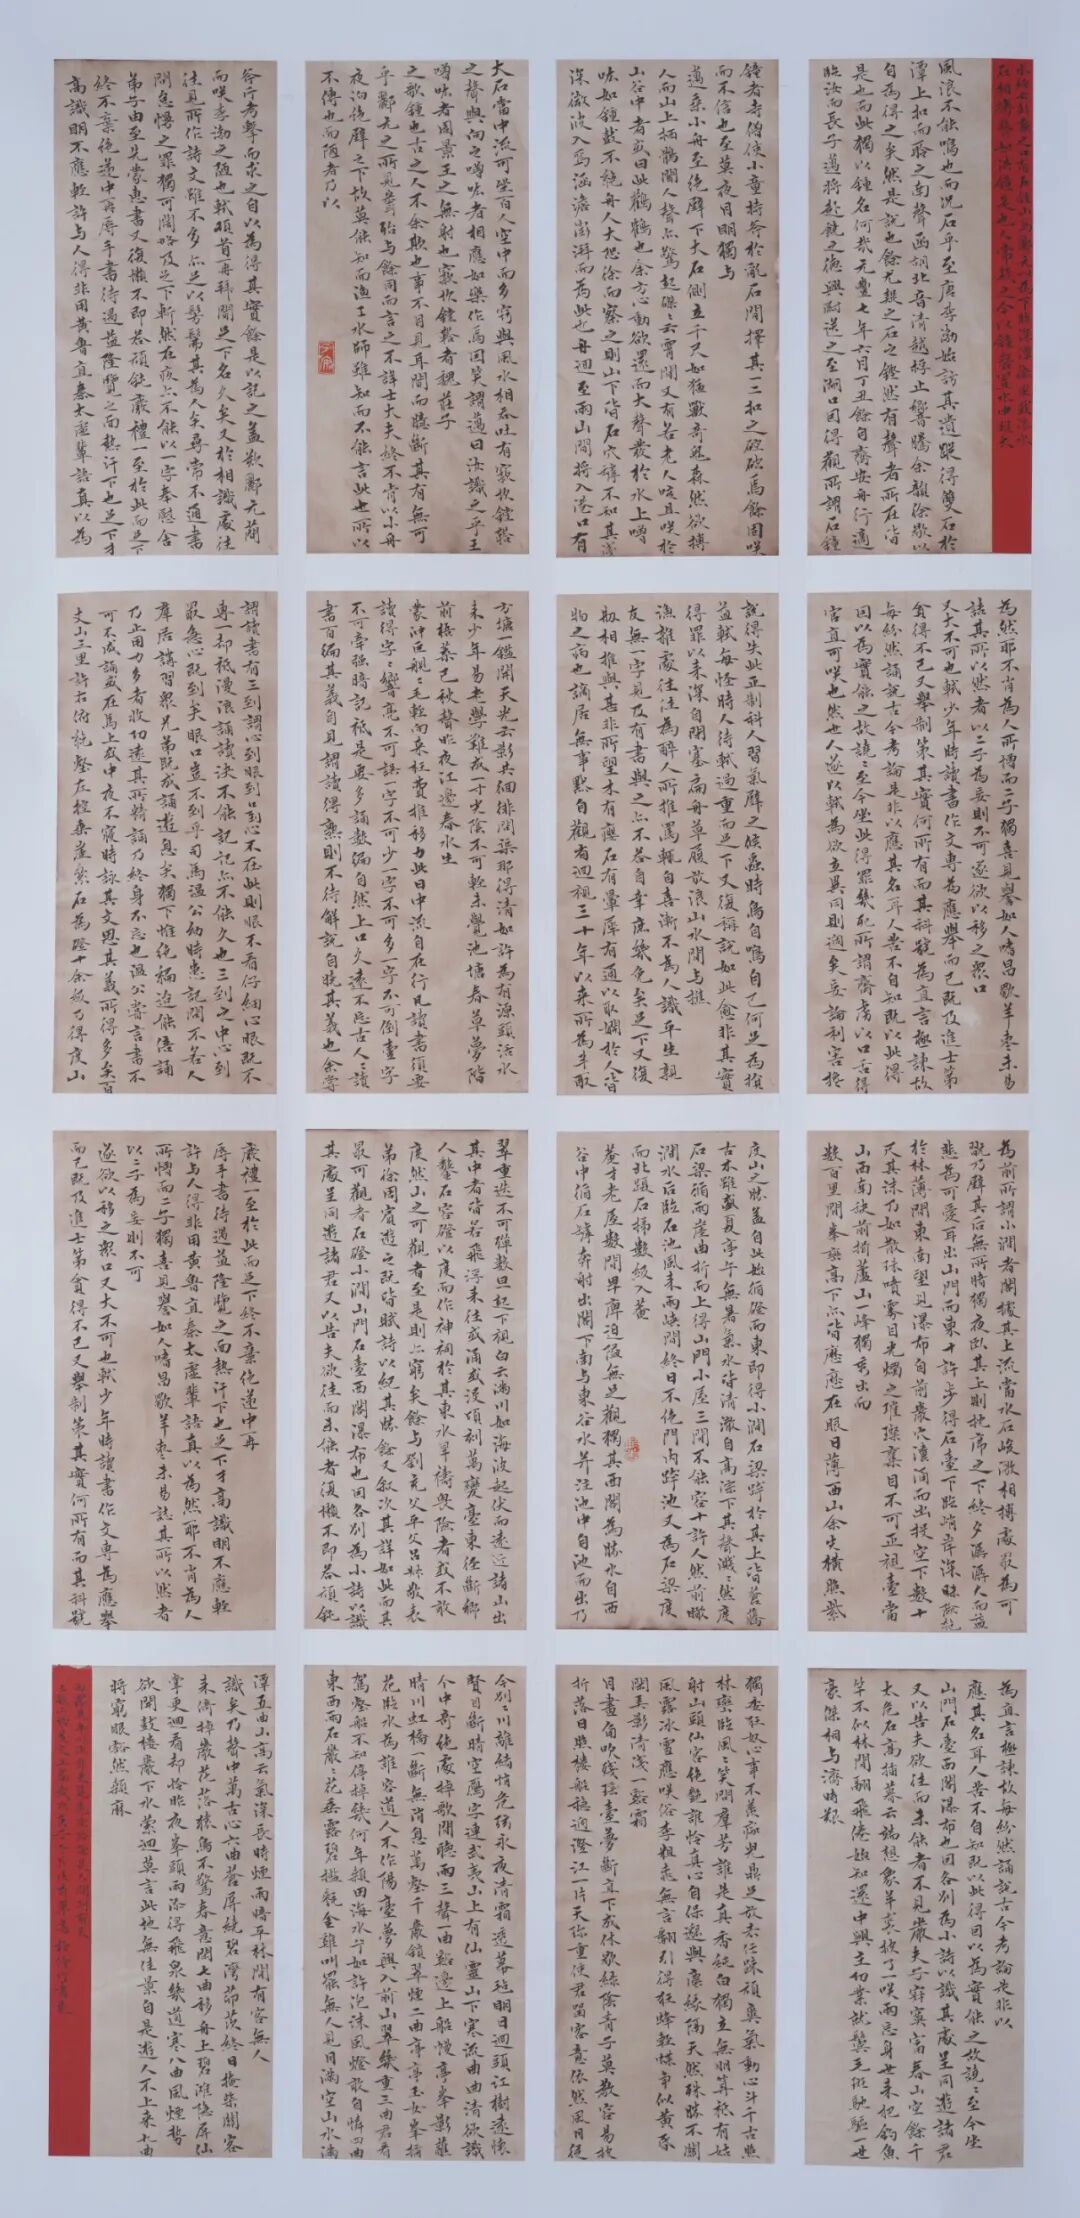 水經云彭蠡之口有石鐘山焉酈元以為下臨深潭微風鼓浪水
石相搏聲如洪鐘是也人常疑之今以鐘磬置水中雖大
風浪不能鳴也而況石乎至唐李渤始訪其遺蹤得雙石於
潭上扣而聆之南聲函胡北音清越桴止響騰余韻徐歇以
自為得之矣然是說也餘尤疑之石之鏗然有聲者所在皆
是也而此獨以鐘名何哉元豐七年六月丁丑餘自齊安舟行適
臨汝而長子邁將赴饒之德興尉送之至湖口因得觀所謂石鐘
鐘者寺僧使小童持斧於亂石間擇其一二扣之硿硿焉餘固咲
而不信也至莫夜月明獨與
邁乘小舟至绝壁下大石側立千尺如猛獸奇鬼森然欲搏
人而山上栖鶻聞人聲亦驚起磔〻云霄間又有若老人咳且咲於
山谷中者或曰此鸛鶴也余方心動欲還而大聲發於水上噌
吰如鐘鼓不絶舟人大恐徐而察之則山下皆石穴罅不知其淺
深微波入焉涵澹澎湃而為此也舟迴至兩山間將入港口有
大石當中流可坐百人空中而多竅與風水相吞吐有窾坎鏜鞳
之聲與向之噌吰者相應如樂作焉因笑謂邁曰汝識之乎
噌吰者周景王之無射也窾坎鏜鞳者魏莊子
之歌鐘也古之人不余欺也事不目見耳聞而臆斷其有無可
乎酈元之所見聞殆与餘同而言之不詳士大夫終不肯以小舟
夜泊絶壁之下故莫能知而漁工水師雖知而不能言此世所以
不傳也而陋者乃以
斧斤考擊而求之自以為得其實餘是以記之蓋歎酈元簡
而咲李渤之陋也軾頓首再拜聞足下名久矣又於相識處往
往見所作詩文雖不多亦足以髣髴其為人矣尋常不通書
問怠慢之罪獨可闊略及足下斬然在疚亦不能以一字奉慰舍
弟子由至先蒙惠書又復懶不即答頑鈍廢禮一至於此而足下
終不棄绝遞中再辱手書待遇益隆覽之面熱汗下也足下才
高識明不應輕許与人得非用黃魯直秦太虛輩語真以為
為然耶不肖為人所憎而二子獨喜見譽如人嗜昌歜羊棗未易
詰其所以然者以二子為妄則不可遂欲以移之眾口
又大不可也軾少年時讀書作文專為應舉而已既及進士第
貪得不已又舉制策其實何所有而其科號為直言極諫故
每紛然誦說古今考論是非以應其名耳人苦不自知既以此得
因以為實能之故譊〻至今坐此得罪幾死所謂齊虜以口舌得
官直可咲也然世人遂以軾為欲立異同則過矣妄論利害攙
說得失此正制科人習氣譬之候蟲時鳥自鳴自已何足為損
益軾每怪時人待軾過重而足下又復稱說如此愈非其實
得罪以来深自閉塞扁舟草履放浪山水間与樵
漁雜處往往為醉人所推罵輒自喜漸不為人識平生親
友無一字見及有書與之亦不答自幸庶幾免矣足下又復
創相推與甚非所望木有癭石有暈犀有通以取妍於人皆
物之病也謫居無事默自觀省迴視三十年以来所為多取
方塘一鑑開天光云影共徘徊問渠那得清如許為有源頭活水
来少年易老學難成一寸光陰不可輕未覺池塘春草夢階
前梧葉已秋聲昨夜江邊春水生
蒙沖巨艦一毛輕向来枉費推移力此日中流自在行凡讀書須要
讀得字〻響亮不可誤一字不可少一字不可多一字不可倒壹字
不可牽强暗記衹是要多誦數遍自然上口久遠不忘古人云讀
書百遍其義自見謂讀得熟則不待解說自曉其義也余嘗
謂讀書有三到謂心到眼到口到心不在此則眼不看仔細心眼既不
專一却衹漫浪誦讀決不能記記亦不能久也三到之中心到
最急心既到矣眼口豈不到乎司馬溫公幼時患記問不若人
羣居講習眾兄弟既成誦遊息矣獨下帷绝編迨能倍誦
乃止用力多者收功遠其所精誦乃終身不忘也温公嘗言書不
可不成誦或在馬上或中夜不寢時詠其文思其義所得多矣百
丈山三里許右俯绝壑左控垂崖叠石為磴十余級乃得度山
為前所謂小澗者閣據其上流當水石峻激相搏處最為可
翫乃壁其后無所睹獨夜卧其上則枕席之下終夕潺潺久而益
悲為可爱耳出山門而東十許步得石臺下臨峭岸深昧險絶
於林薄間東南望見瀑布自前巖穴瀵涌而出投空下數十
尺其沫乃如散珠噴霧目光燭之璀璨奪目不可正視臺當
山西南缺前揖蘆山一峰獨秀出而
數百里間峯巒高下亦皆歷歷在眼日薄西山余光橫照紫
度山之勝蓋自此始循磴而東即得小澗石梁跨於其上皆蒼藤
古木雖盛夏亭午無暑氣水皆清澈自高淙下其聲濺〻然度
石梁循兩崖曲折而上得山門小屋三間不能容十許人然前瞰
澗水后臨石池風来兩峽間終日不绝門內跨池又為石梁度
而北躡石梯數級入菴
菴才老屋數間卑庳迫隘無足觀獨其西閣為勝水自西
谷中循石罅奔射出閣下南与東谷水并注池中自池而出乃
翠重迭不可殫數旦起下視白云滿川如海波起伏而遠近諸山出
其中者皆若飛浮来往或涌或没頃刻萬變臺東徑斷鄉
人鑿石容磴以度而作神祠於其東水旱禱焉畏險者或不敢
度然山之可觀者至是則亦窮矣餘与劉充父平父呂叔敬表
弟徐周賓遊之既皆賦詩以紀其勝餘又叙次其詳如此而其
最可觀者石磴小澗山門石臺西閣瀑布也因各別為小詩以識
其處呈同遊諸君又以告夫欲往而未能者復懶不即答頑鈍
廢禮一至於此而足下終不棄绝遞中再
辱手書待遇益隆覽之面熱汗下也足下才高識明不應輕
許与人得非用黃魯直秦太虛輩語真以為然耶不肖為人
所憎而二子獨喜見譽如人嗜昌歜羊棗未易詰其所以然者
以二子為妄則不可
遂欲以移之眾口又大不可也軾少年時讀書作文專為應舉
而已既及進士第貪得不已又舉制策其實何所有而其科號
為直言極諫故每紛然誦說古今考論是非以
應其名耳人苦不自知既以此得因以為實能之故譊〻至今坐
山門石臺西閣瀑布也因各別為小詩以識其處呈同遊諸君
又以告夫欲往而未能者不見嚴夫子寂寞富春山空餘千
丈危石高插暮云端想象羊裘披了一咲兩忘身世来把釣魚
竿不似林間翮飛倦始知還中興主功業就鬢毛斑馳驅一世
豪傑相与濟時艱
獨委狂奴心事不羨痴兒鼎足放去任疎頑爽氣動心斗千古照
林巒臨風一笑問羣芳誰是真香純白獨立無朋算衹有姑
射山頭仙客绝艷誰怜真心自保邈與塵緣隔天然殊勝不關
風露冰雪應咲俗李粗桃無言翻引得狂蜂輕蝶争似黄昏
閑弄影清淺一谿霜
月畫角吹殘瑤臺夢斷直下成休歇緑陰青子莫教容易披
折落日照樓船穩過澄江一片天珍重使君留客意依然風月從
今別一川離緒悄危弦永夜清霜透幕毡明日迴頭江樹遠懷
賢目斷晴空雁字連武夷山上有仙靈山下寒流曲曲清欲識
個中奇绝處棹歌閑聽兩三聲一曲谿邊上船幔亭峯影蘸
晴川虹橋一斷無消息萬壑千巖鎖翠烟二曲亭亭玉女峯插
花臨水為誰容道人不作陽臺夢興入前山翠幾重三曲君看
駕壑船不知停棹幾何年桑田海水兮如許泡沫風燈敢自憐四曲
東西兩石巖巖花垂露碧㲯毿金雞叫罷無人見月滿空山水滿
潭五曲山高云氣深長時烟雨暗平林林間有客無人
識欸乃聲中萬古心六曲蒼屏绕碧灣茆茨終日掩柴關客
来倚棹巖花落猿鳥不驚春意閑七曲移舟上碧灘隐屏仙
掌更迴看却怜昨夜峯頭雨添得飛泉幾道寒八曲風烟势
欲開鼓樓巖下水縈迴莫言此地無佳景自是遊人不上来九曲
將窮眼豁然桑麻